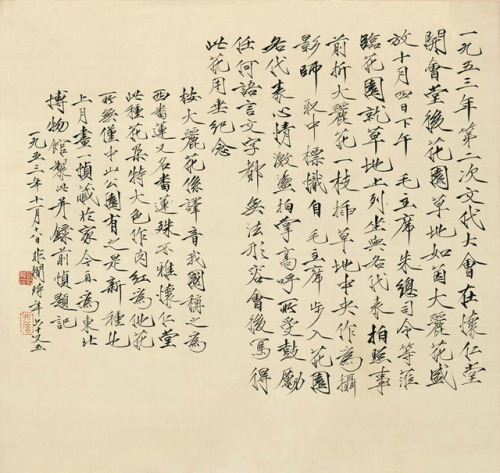 一九五三年第二次文代大會在懷仁堂
開會堂後花園草地如茵大麗花盛
放十月四日下午 毛主席朱總司令等蒞
臨花園就草地上列坐與各代表拍照事
前折大麗花一枝插草地中央作為攝
影師取中標幟自毛主席步入花園
各代表心情激盪拍掌高呼所受鼓勵
任何語言文字都無法形容會後寫得
此花用坐紀念
按大麗花係譯音我國稱之為
西番蓮又名番蓮殊不雅懷仁堂
此種花朵特大色作肉紅為他花
所無僅中山公園有之是新種也
上月畫一幀藏於家今再為東北
博物館製此并錄前幀題記
一九五三年十一月 日非闇時年六十又五